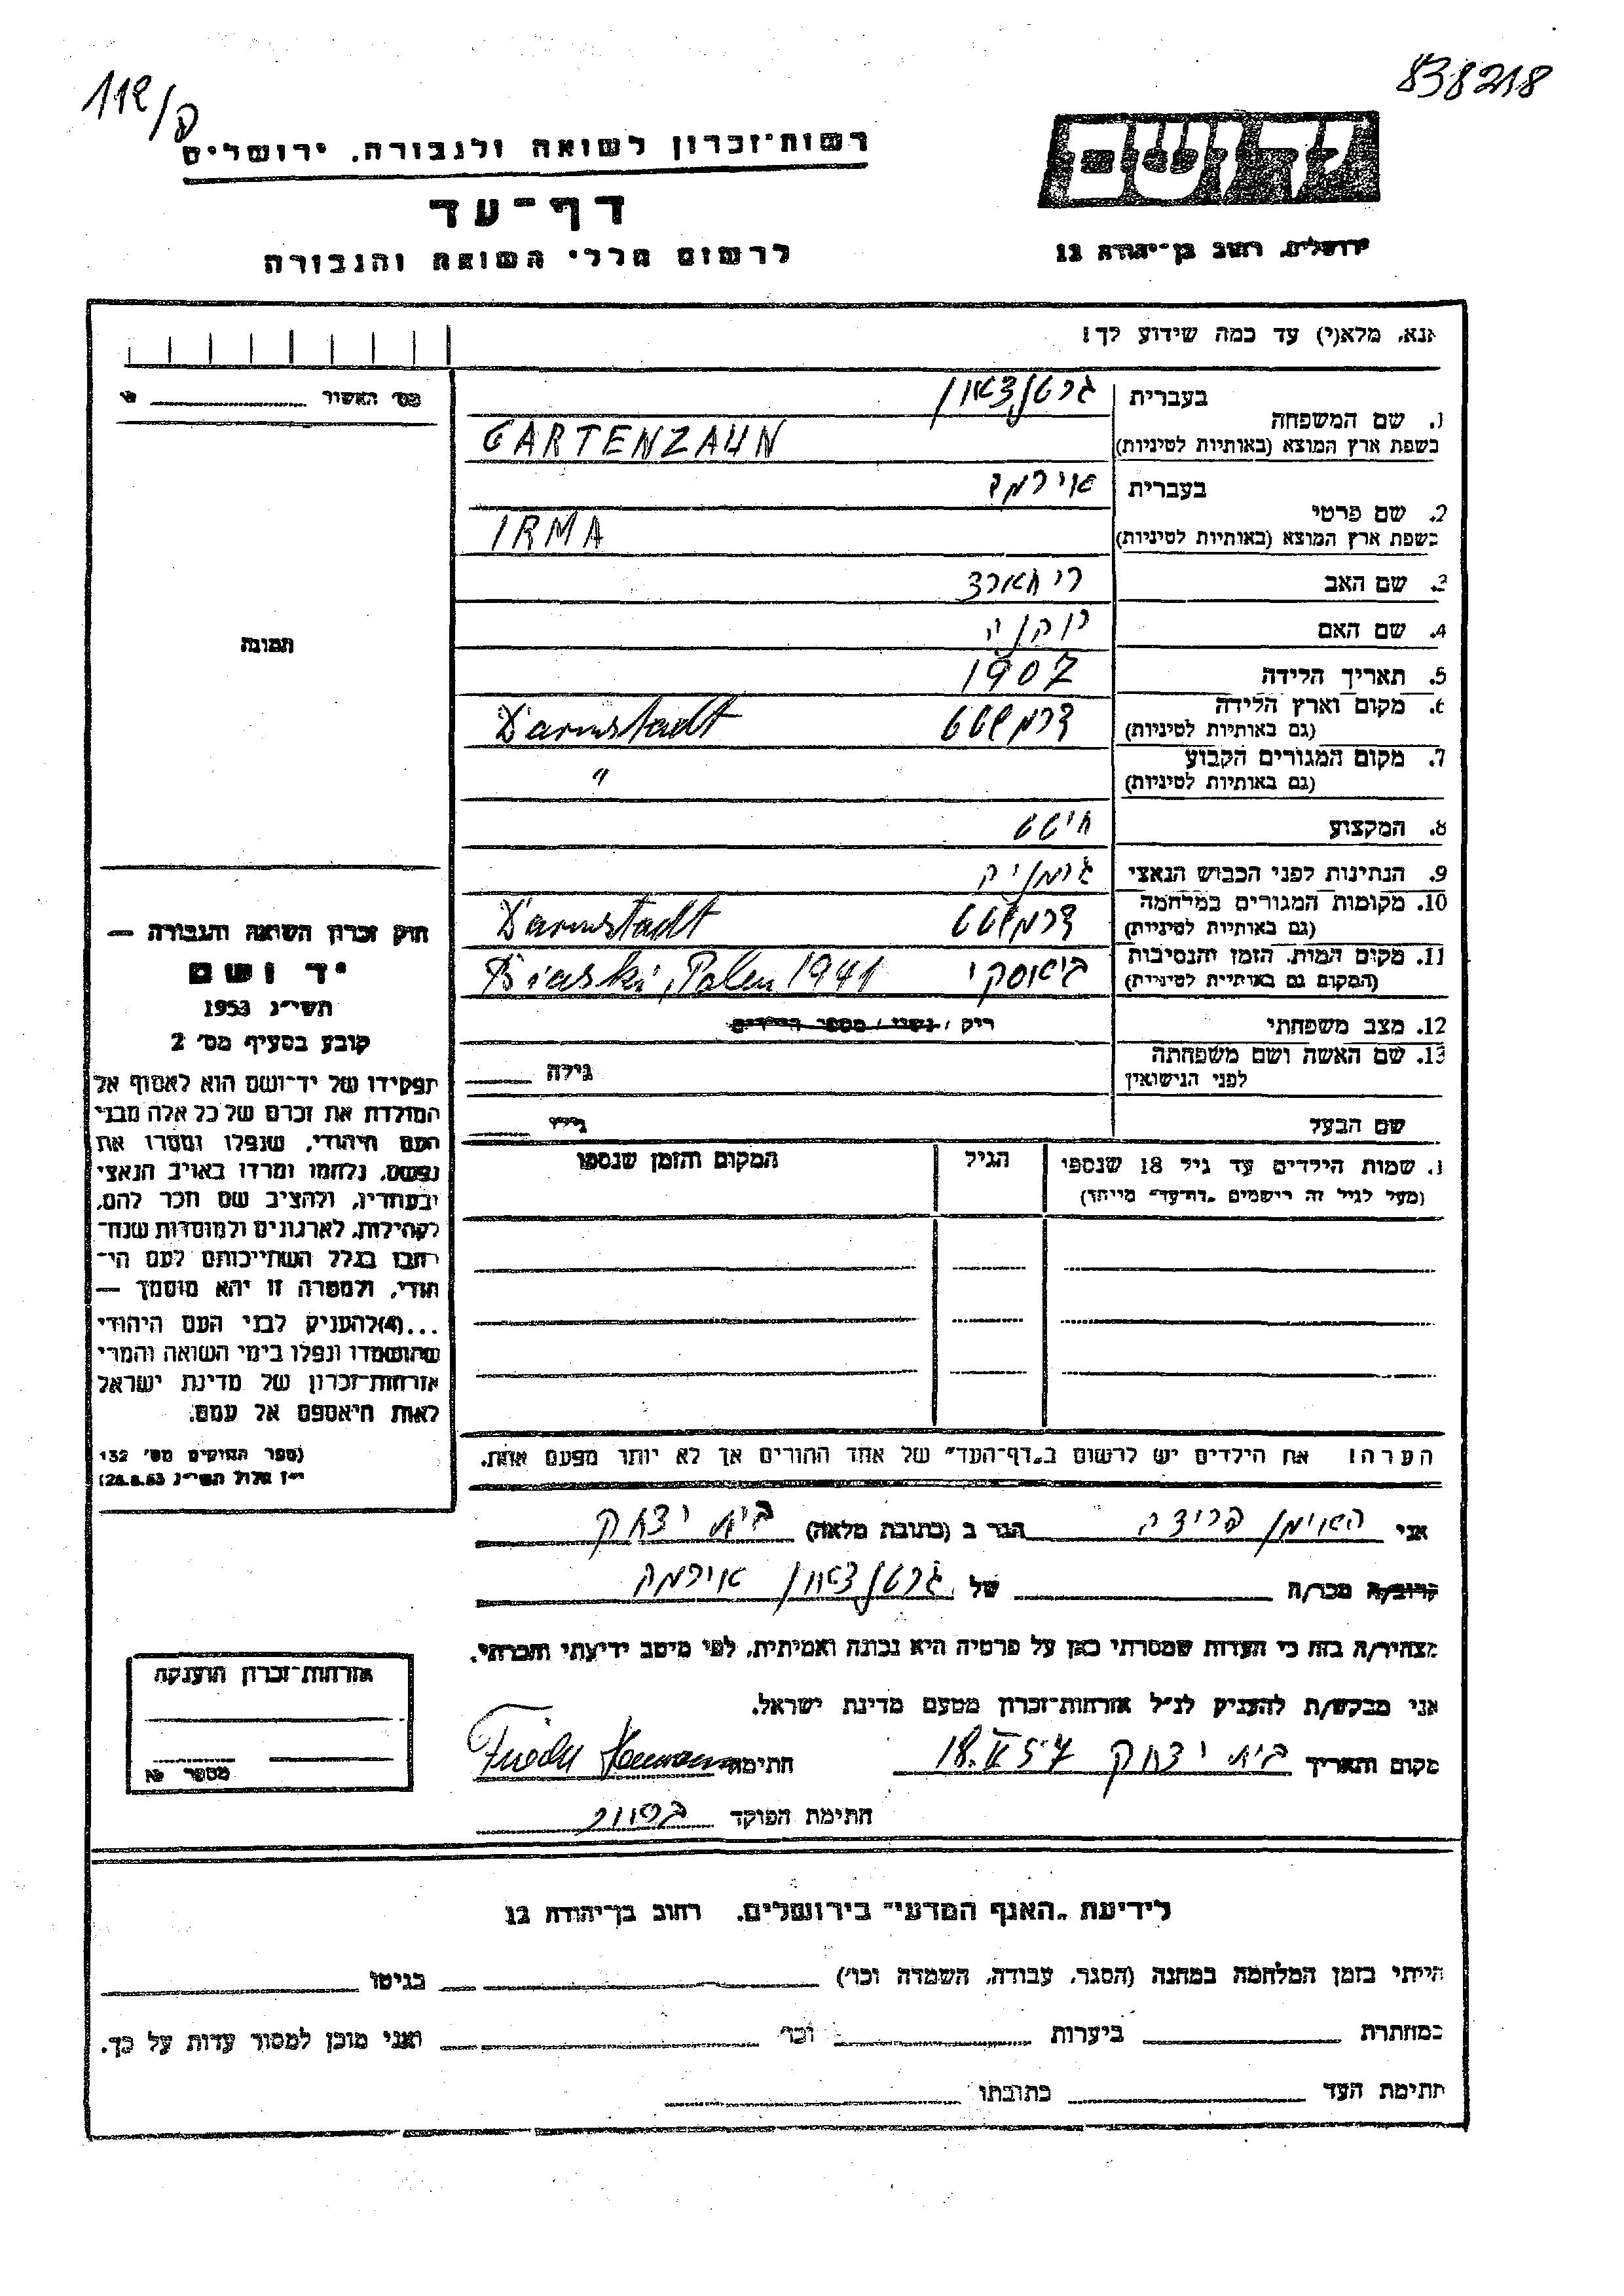 112/ק
838218
רשות־זכרון לשואה ולגבורה, ירושלים
יד ושם
דף־עד
ירושלים, רחוב בן־יהודה 12
לרשום חללי השואה והגבורה
אנא, מלא(י) עד כמה שידוע לך!
מס' האשור
1. שם המשפחה
בעברית גרטנצאון
בשפת ארץ המוצא (באותיות לטיניות) GARTENZAUN
2. שם פרטי
בעברית אירמה
בשפת ארץ המוצא (באותיות לטיניות) IRMA
3. שם האב ריחארד
4. שם האם
5. תאריך הלידה 1907
6. מקום וארץ הלידה (גם באותיות לטיניות) דרמשטט Darmstadt
7. מקום המגורים הקבוע (גם באותיות לטיניות) "
8. המקצוע חייטת
9. הנתינות לפני הכבוש הנאצי גרמניה
10. מקומות המגורים במלחמה (גם באותיות לטיניות) דרמשטט Darmstadt
11. מקום המות, הזמן והנסיבות (המקום גם באותיות לטיניות) ביאסקי Biaski, Polen 1941
12. מצב משפחתי רוק / נשוי / מספר הילדים
13. שם האשה ושם משפחתה לפני הנישואין גילה
שם הבעל גילו
תמונה
חוק זכרון השואה והגבורה —
יד ושם
תשי"ג 1953
קובע בסעיף מס' 2
תפקידו של יד־ושם הוא לאסוף אל
המולדת את זכרם של כל אלה מבני
העם היהודי, שנפלו ומסרו את
נפשם, נלחמו ומרדו באויב הנאצי
ובעוזריו, ולהציב שם וזכר להם,
לקהילות, לארגונים ולמוסדות שנח־
רבו בגלל השתייכותם לעם הי־
הודי, ולמטרה זו יהא מוסמך —
...(4)להעניק לבני העם היהודי
שהושמדו ונפלו בימי השואה והמרי
אזרחות־זכרון של מדינת ישראל
לאות היאספם אל עמם.
(ספר החוקים מס' 132
י"ז אלול תשי"ג 28.8.53)
1. שמות הילדים עד גיל 18 שנספו הגיל המקום והזמן שנספו
(מעל לגיל זה רישמים "דף־עד" מיוחד)
הערה! את הילדים יש לרשום ב"דף־העד" של אחד ההורים אך לא יותר מפעם אחת.
אני הוימן פרידה הגר ב (כתובת מלאה) בית יצחק
קרוב/ה מכר/ה של גרטנצאון אירמה
מצהיר/ה בזה כי העדות שמסרתי כאן על פרטיה היא נכונה ואמיתית, לפי מיטב ידיעתי והכרתי.
אני מבקש/ת להעניק לנ"ל אזרחות־זכרון מטעם מדינת ישראל.
מקום ותאריך בית יצחק 57 חתימה
חתימת הפוקד
אזרחות־זכרון הוענקה
מספר
לידיעת "האגף המדעי" בירושלים, רחוב בן־יהודה 12
הייתי בזמן המלחמה במחנה (הסגר, עבודה, השמדה וכו') בגיטו
במחתרת ביערות וכו' ואני מוכן למסור עדות על כך.
חתימת העד כתובתו